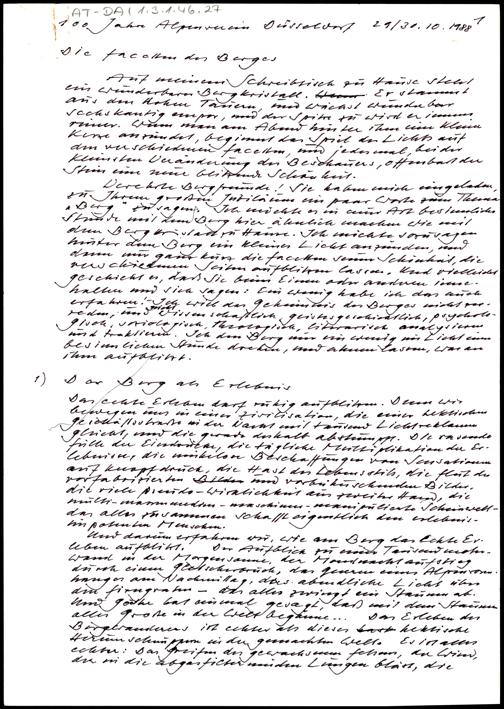 AT-DA(1.3.1.46.27
1
100 Jahre Alpenverein Düsseldorf 29/30.10.1988
Die Facetten des Berges
Auf meinem Schreibtisch zu Hause steht
ein wunderbarer Bergkristall. Er stammt
aus den Hohen Tauern, und wächst wunderbar
sechskantig empor, und der Spitze zu wird er immer
reiner. Wenn man am Abend hinter ihm eine kleine
Kerze anzündet, beginnt das Spiel des Lichts auf
den verschiedenen Facetten, und jedesmal, bei der
kleinsten Veränderung des Beschauers, offenbart der
Stein eine neue blitzende Schönheit.
Verehrte Bergfreunde! Sie haben mich eingeladen,
zu Ihrem großen Jubiläum ein paar Worte zum Thema
"Berg" zu sagen. Ich möchte es in einer Art besinnlicher
Stunde mit dem Berg hier ähnlich machen wie mit
dem Bergkristall zu Hause. Ich möchte sozusagen
hinter dem Berg ein kleines Licht anzünden, und
dann nur ganz kurz die Facetten seiner Schönheit, die
verschiedenen Seiten aufblitzen lassen. Und vielleicht
geschieht es, daß Sie beim Einen oder anderen inne-
halten und sich sagen: Ein wenig habe ich das auch
erfahren! Ich will das Geheimnis des Berges nicht zer-
reden, und wissenschaftlich, geistesgeschichtlich, psycholo-
gisch, soziologisch, theologisch, literarisch analysieren
und traktieren. Ich den Berg nur ein wenig im Licht einer
besinnlichen Stunde drehen, und ahnen lassen, was an
ihm aufblitzt.
1) Der Berg als Erlebnis
Das echte Erleben darf ruhig aufblitzen. Denn wir
bewegen uns in einer Zivilisation, die einer hektischen
Geschäftsstraße in der Nacht mit tausend Lichtreklamen
gleicht, und die gerade deshalb abstumpft. Die rasende
Fülle der Eindrücke, die tägliche Multiplikation der Er-
lebnisse, die mühelose Beschaffung von Sensationen
auf Knopfdruck, die Hast des Lebensstils, die Flut der
vorfabrizierten und vorbeihuschenden Bilder,
die viele Pseudo-Wirklichkeit aus zweiter Hand, die
manipulierte Scheinwelt -
das alles zusammen schafft eigentlich den erlebnis-
impotenten Menschen.
Und darum erfahren wir, wie am Berg das Echte Er-
leben aufblitzt. Der Aufblick zu einer Tausendmeter-
wand in der Morgensonne, der Mondnachtaufstieg
durch einen Gletscherbruch, das Queren eines Alpenrosen-
hanges am Nachmittag, das abendliche Licht über
den Firngraten - das alles zwingt ein Staunen ab.
Und Goethe hat einmal gesagt, daß mit dem Staunen
alles Große in der Welt beginne... Das Erleben des
Bergwanderers ist echter als dieses hektische
in der gemachten Welt. Es ist alles
echter: Das Greifen des gewachsenen Felsens, der Wind,
der in die Lungen bläst, die